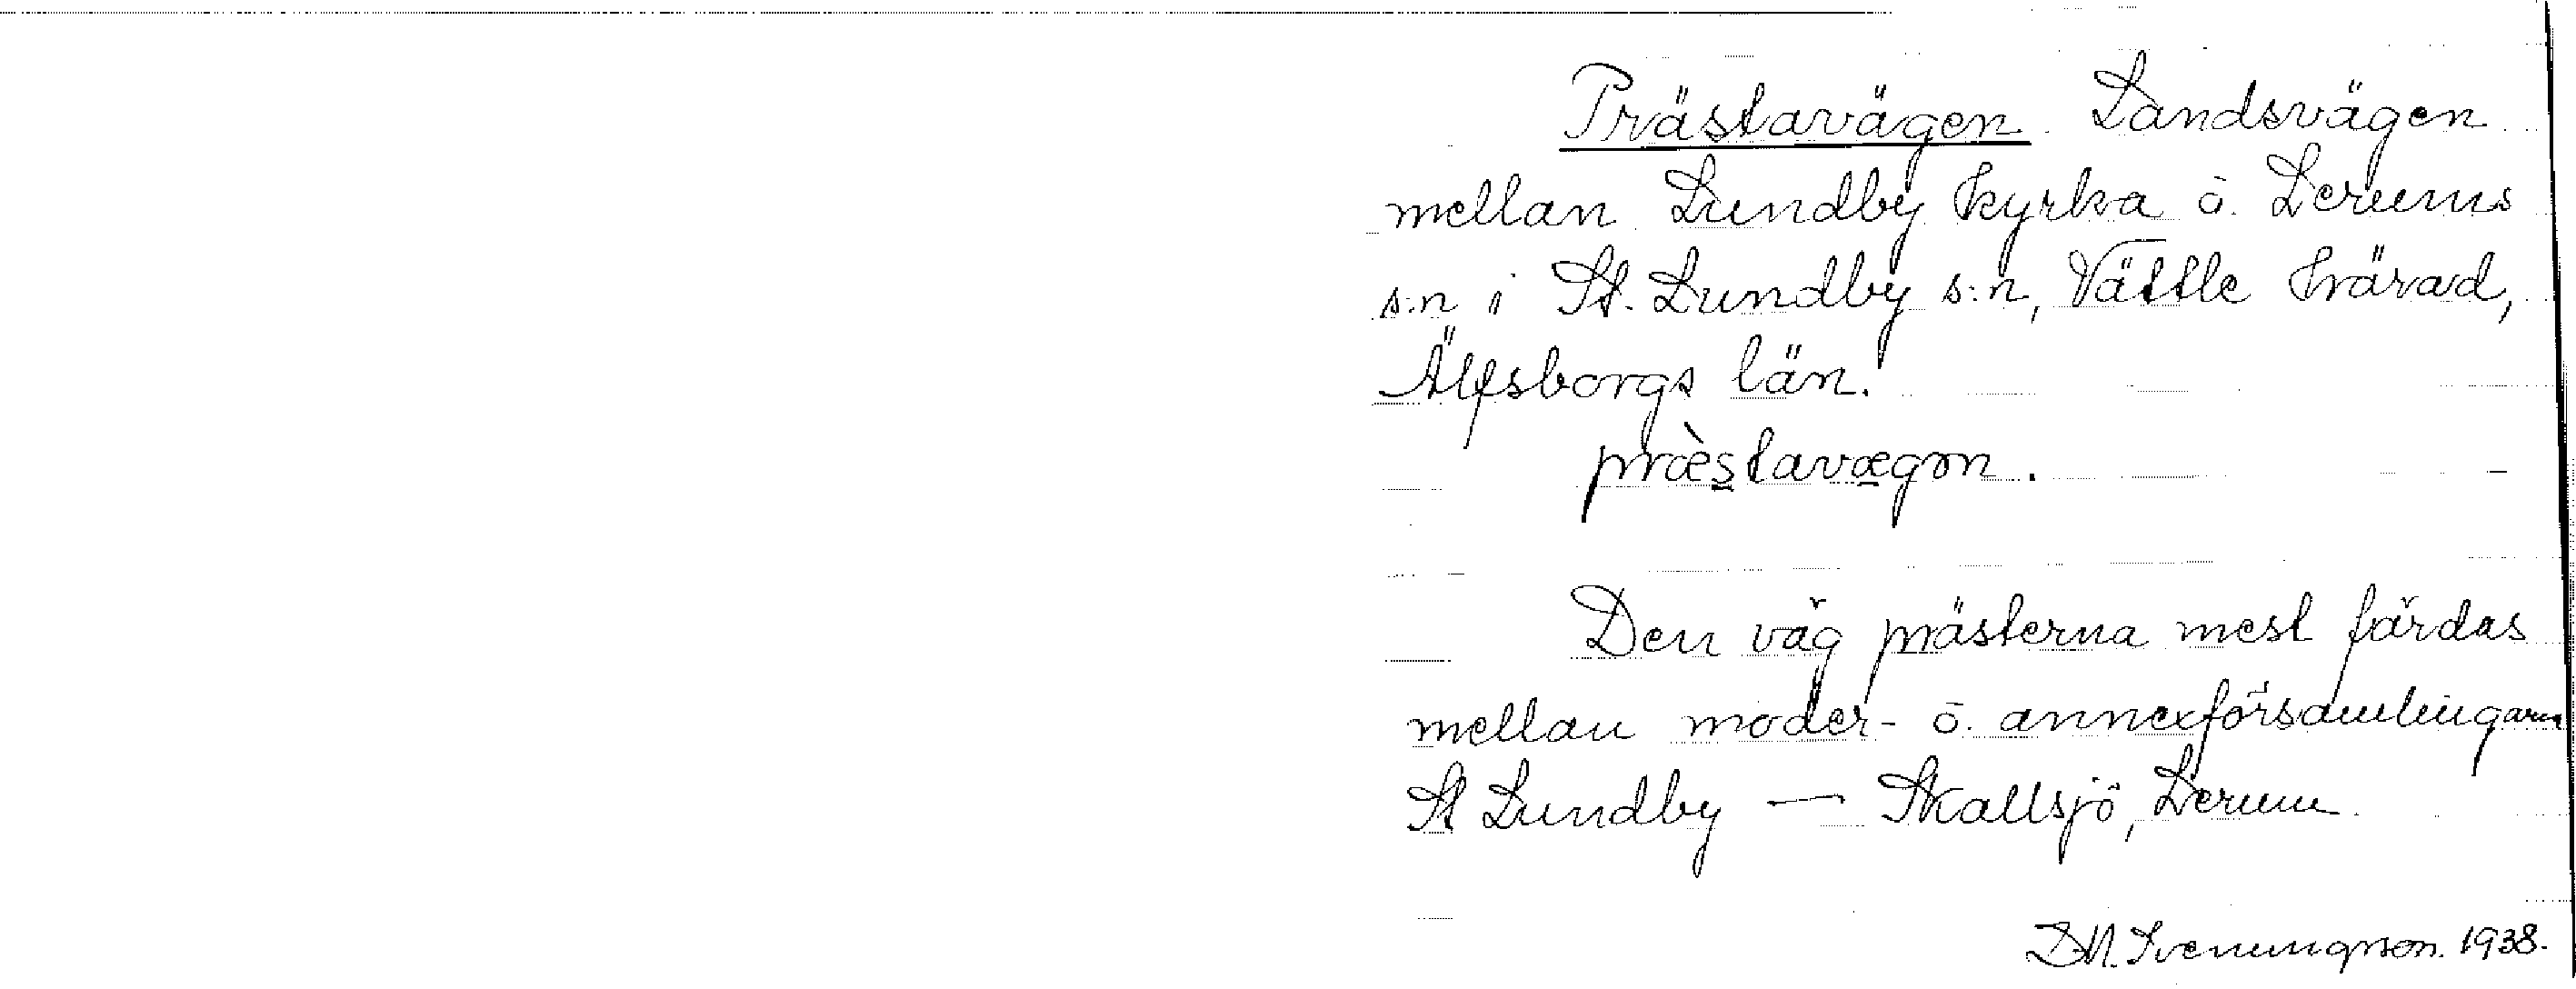 Prästavägen. Landsvägen
mellan Lundby kyrka o. Lerums
s:n i St. Lundby s:n, Vättle härad,
Älfsborgs län.
præ̀stavægən.
Den väg prästerna mest färdas
mellan moder- o. annexförsamlingarna
St Lundby — Skallsjö, Lerum.
D.N. Svenungsson. 1938.